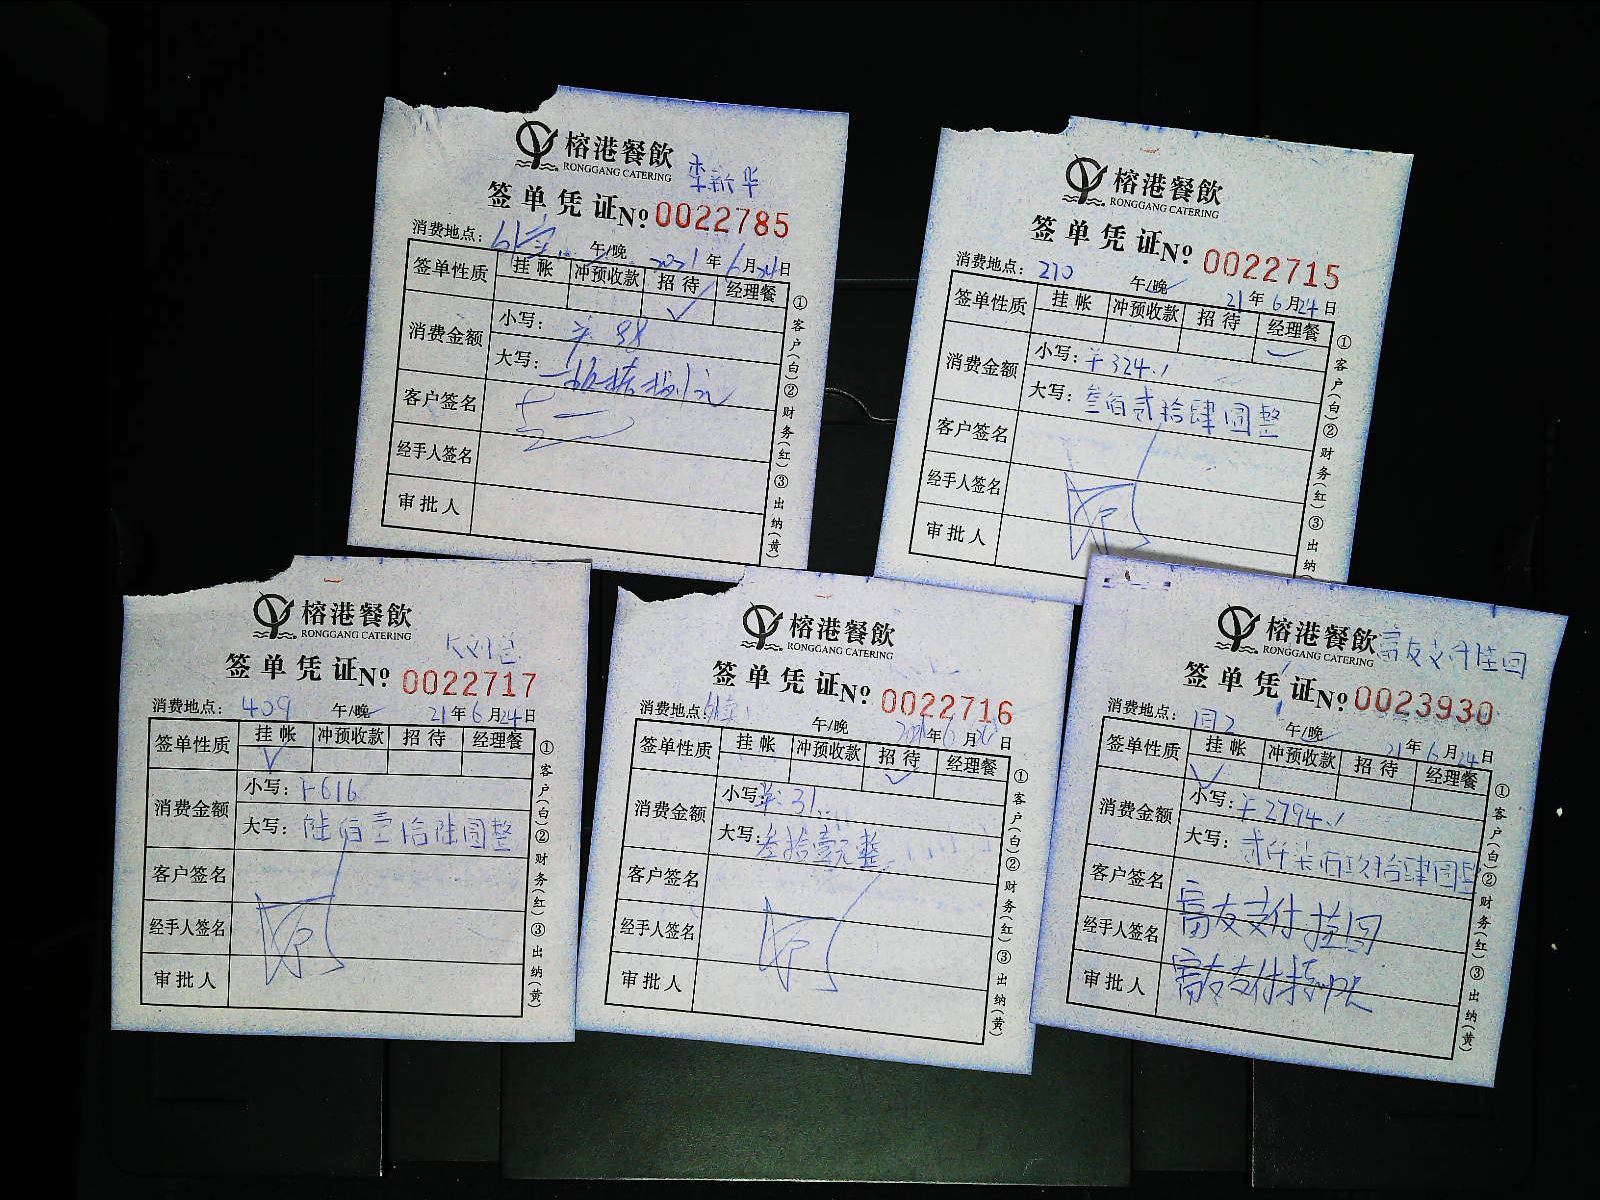 榕港餐飲
RONGGANG CATERING
李新华
签单凭证 № 0022785
消费地点： 午/晚 2021年6月24日
签单性质 挂帐 冲预收款 招待 ✓ 经理餐
消费金额 小写：¥ 98
大写：
客户签名
经手人签名
审批人
①客户(白)②财务(红)③出纳(黄)
榕港餐飲
RONGGANG CATERING
签单凭证 № 0022715
消费地点：210 午/晚 21年6月24日
签单性质 挂帐 冲预收款 招待 经理餐
消费金额 小写：¥324.
大写：叁佰贰拾肆圆整
客户签名
经手人签名
审批人
①客户(白)②财务(红)③出纳
榕港餐飲
RONGGANG CATERING
签单凭证 № 0022717
消费地点：409 午/晚 21年6月24日
签单性质 挂帐 ✓ 冲预收款 招待 经理餐
消费金额 小写：¥616
大写：陆佰壹拾陆圆整
客户签名
经手人签名
审批人
①客户(白)②财务(红)③出纳(黄)
榕港餐飲
RONGGANG CATERING
签单凭证 № 0022716
消费地点： 午/晚 2021年6月 日
签单性质 挂帐 冲预收款 招待 ✓ 经理餐
消费金额 小写：¥:31
大写：叁拾壹元整
客户签名
经手人签名
审批人
①客户(白)②财务(红)③出纳(黄)
榕港餐飲
RONGGANG CATERING
富友支付挂回
签单凭证 № 0023930
消费地点： 午/晚 21年6月24日
签单性质 挂帐 ✓ 冲预收款 招待 经理餐
消费金额 小写：¥2794.
大写：贰仟柒佰玖拾肆圆整
客户签名
富友支付挂回
经手人签名
审批人 富友支付
①客户(白)②财务(红)③出纳(黄)